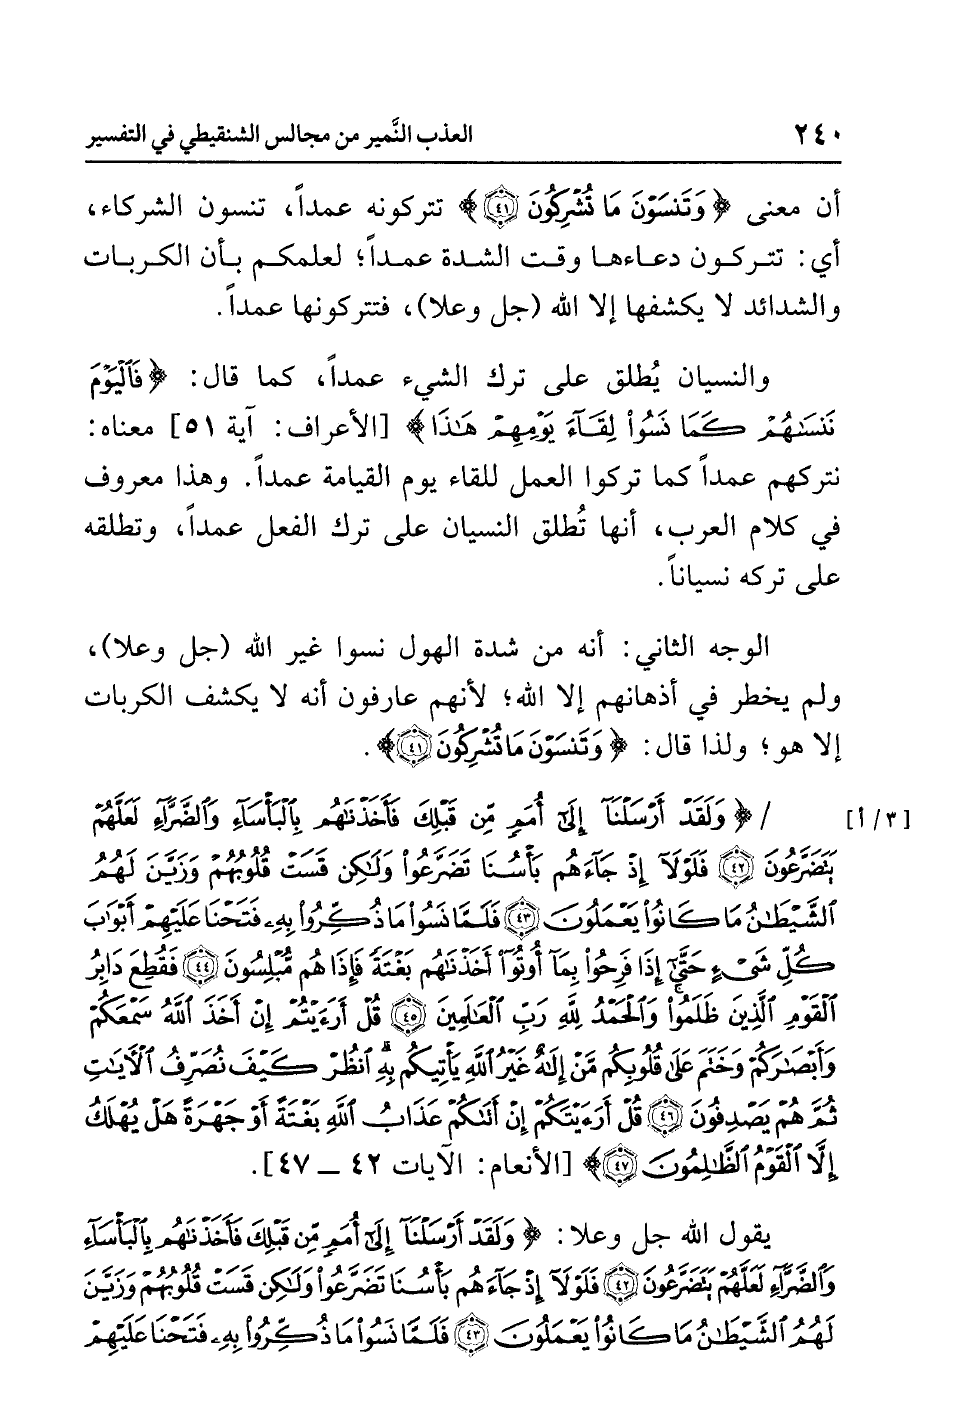 ٢٤٠ العذب النَّمير من مجالس الشنقيطي في التفسير
أن معنى ﴿ وَتَنسَوْنَ مَا تُشْرِكُونَ ﴿٤١﴾ ﴾ تتركونه عمداً، تنسون الشركاء،
أي: تتركون دعاءها وقت الشدة عمداً؛ لعلمكم بأن الكربات
والشدائد لا يكشفها إلا الله (جل وعلا)، فتتركونها عمداً.
والنسيان يُطلق على ترك الشيء عمداً، كما قال: ﴿ فَٱلْيَوْمَ
نَنسَىٰهُمْ كَمَا نَسُوا۟ لِقَآءَ يَوْمِهِمْ هَٰذَا ﴾ [الأعراف: آية ٥١] معناه:
نتركهم عمداً كما تركوا العمل للقاء يوم القيامة عمداً. وهذا معروف
في كلام العرب، أنها تُطلق النسيان على ترك الفعل عمداً، وتطلقه
على تركه نسياناً.
الوجه الثاني: أنه من شدة الهول نسوا غير الله (جل وعلا)،
ولم يخطر في أذهانهم إلا الله؛ لأنهم عارفون أنه لا يكشف الكربات
إلا هو؛ ولذا قال: ﴿ وَتَنسَوْنَ مَا تُشْرِكُونَ ﴿٤١﴾ ﴾.
[٣/أ] / ﴿ وَلَقَدْ أَرْسَلْنَآ إِلَىٰٓ أُمَمٍ مِّن قَبْلِكَ فَأَخَذْنَٰهُم بِٱلْبَأْسَآءِ وَٱلضَّرَّآءِ لَعَلَّهُمْ
يَتَضَرَّعُونَ ﴿٤٢﴾ فَلَوْلَآ إِذْ جَآءَهُم بَأْسُنَا تَضَرَّعُوا۟ وَلَٰكِن قَسَتْ قُلُوبُهُمْ وَزَيَّنَ لَهُمُ
ٱلشَّيْطَٰنُ مَا كَانُوا۟ يَعْمَلُونَ ﴿٤٣﴾ فَلَمَّا نَسُوا۟ مَا ذُكِّرُوا۟ بِهِۦ فَتَحْنَا عَلَيْهِمْ أَبْوَٰبَ
كُلِّ شَىْءٍ حَتَّىٰٓ إِذَا فَرِحُوا۟ بِمَآ أُوتُوٓا۟ أَخَذْنَٰهُم بَغْتَةً فَإِذَا هُم مُّبْلِسُونَ ﴿٤٤﴾ فَقُطِعَ دَابِرُ
ٱلْقَوْمِ ٱلَّذِينَ ظَلَمُوا۟ ۚ وَٱلْحَمْدُ لِلَّهِ رَبِّ ٱلْعَٰلَمِينَ ﴿٤٥﴾ قُلْ أَرَءَيْتُمْ إِنْ أَخَذَ ٱللَّهُ سَمْعَكُمْ
وَأَبْصَٰرَكُمْ وَخَتَمَ عَلَىٰ قُلُوبِكُم مَّنْ إِلَٰهٌ غَيْرُ ٱللَّهِ يَأْتِيكُم بِهِ ۗ ٱنظُرْ كَيْفَ نُصَرِّفُ ٱلْءَايَٰتِ
ثُمَّ هُمْ يَصْدِفُونَ ﴿٤٦﴾ قُلْ أَرَءَيْتَكُمْ إِنْ أَتَىٰكُمْ عَذَابُ ٱللَّهِ بَغْتَةً أَوْ جَهْرَةً هَلْ يُهْلَكُ
إِلَّا ٱلْقَوْمُ ٱلظَّٰلِمُونَ ﴿٤٧﴾ ﴾ [الأنعام: الآيات ٤٢ ــ ٤٧].
يقول الله جل وعلا: ﴿ وَلَقَدْ أَرْسَلْنَآ إِلَىٰٓ أُمَمٍ مِّن قَبْلِكَ فَأَخَذْنَٰهُم بِٱلْبَأْسَآءِ
وَٱلضَّرَّآءِ لَعَلَّهُمْ يَتَضَرَّعُونَ ﴿٤٢﴾ فَلَوْلَآ إِذْ جَآءَهُم بَأْسُنَا تَضَرَّعُوا۟ وَلَٰكِن قَسَتْ قُلُوبُهُمْ وَزَيَّنَ
لَهُمُ ٱلشَّيْطَٰنُ مَا كَانُوا۟ يَعْمَلُونَ ﴿٤٣﴾ فَلَمَّا نَسُوا۟ مَا ذُكِّرُوا۟ بِهِۦ فَتَحْنَا عَلَيْهِمْ